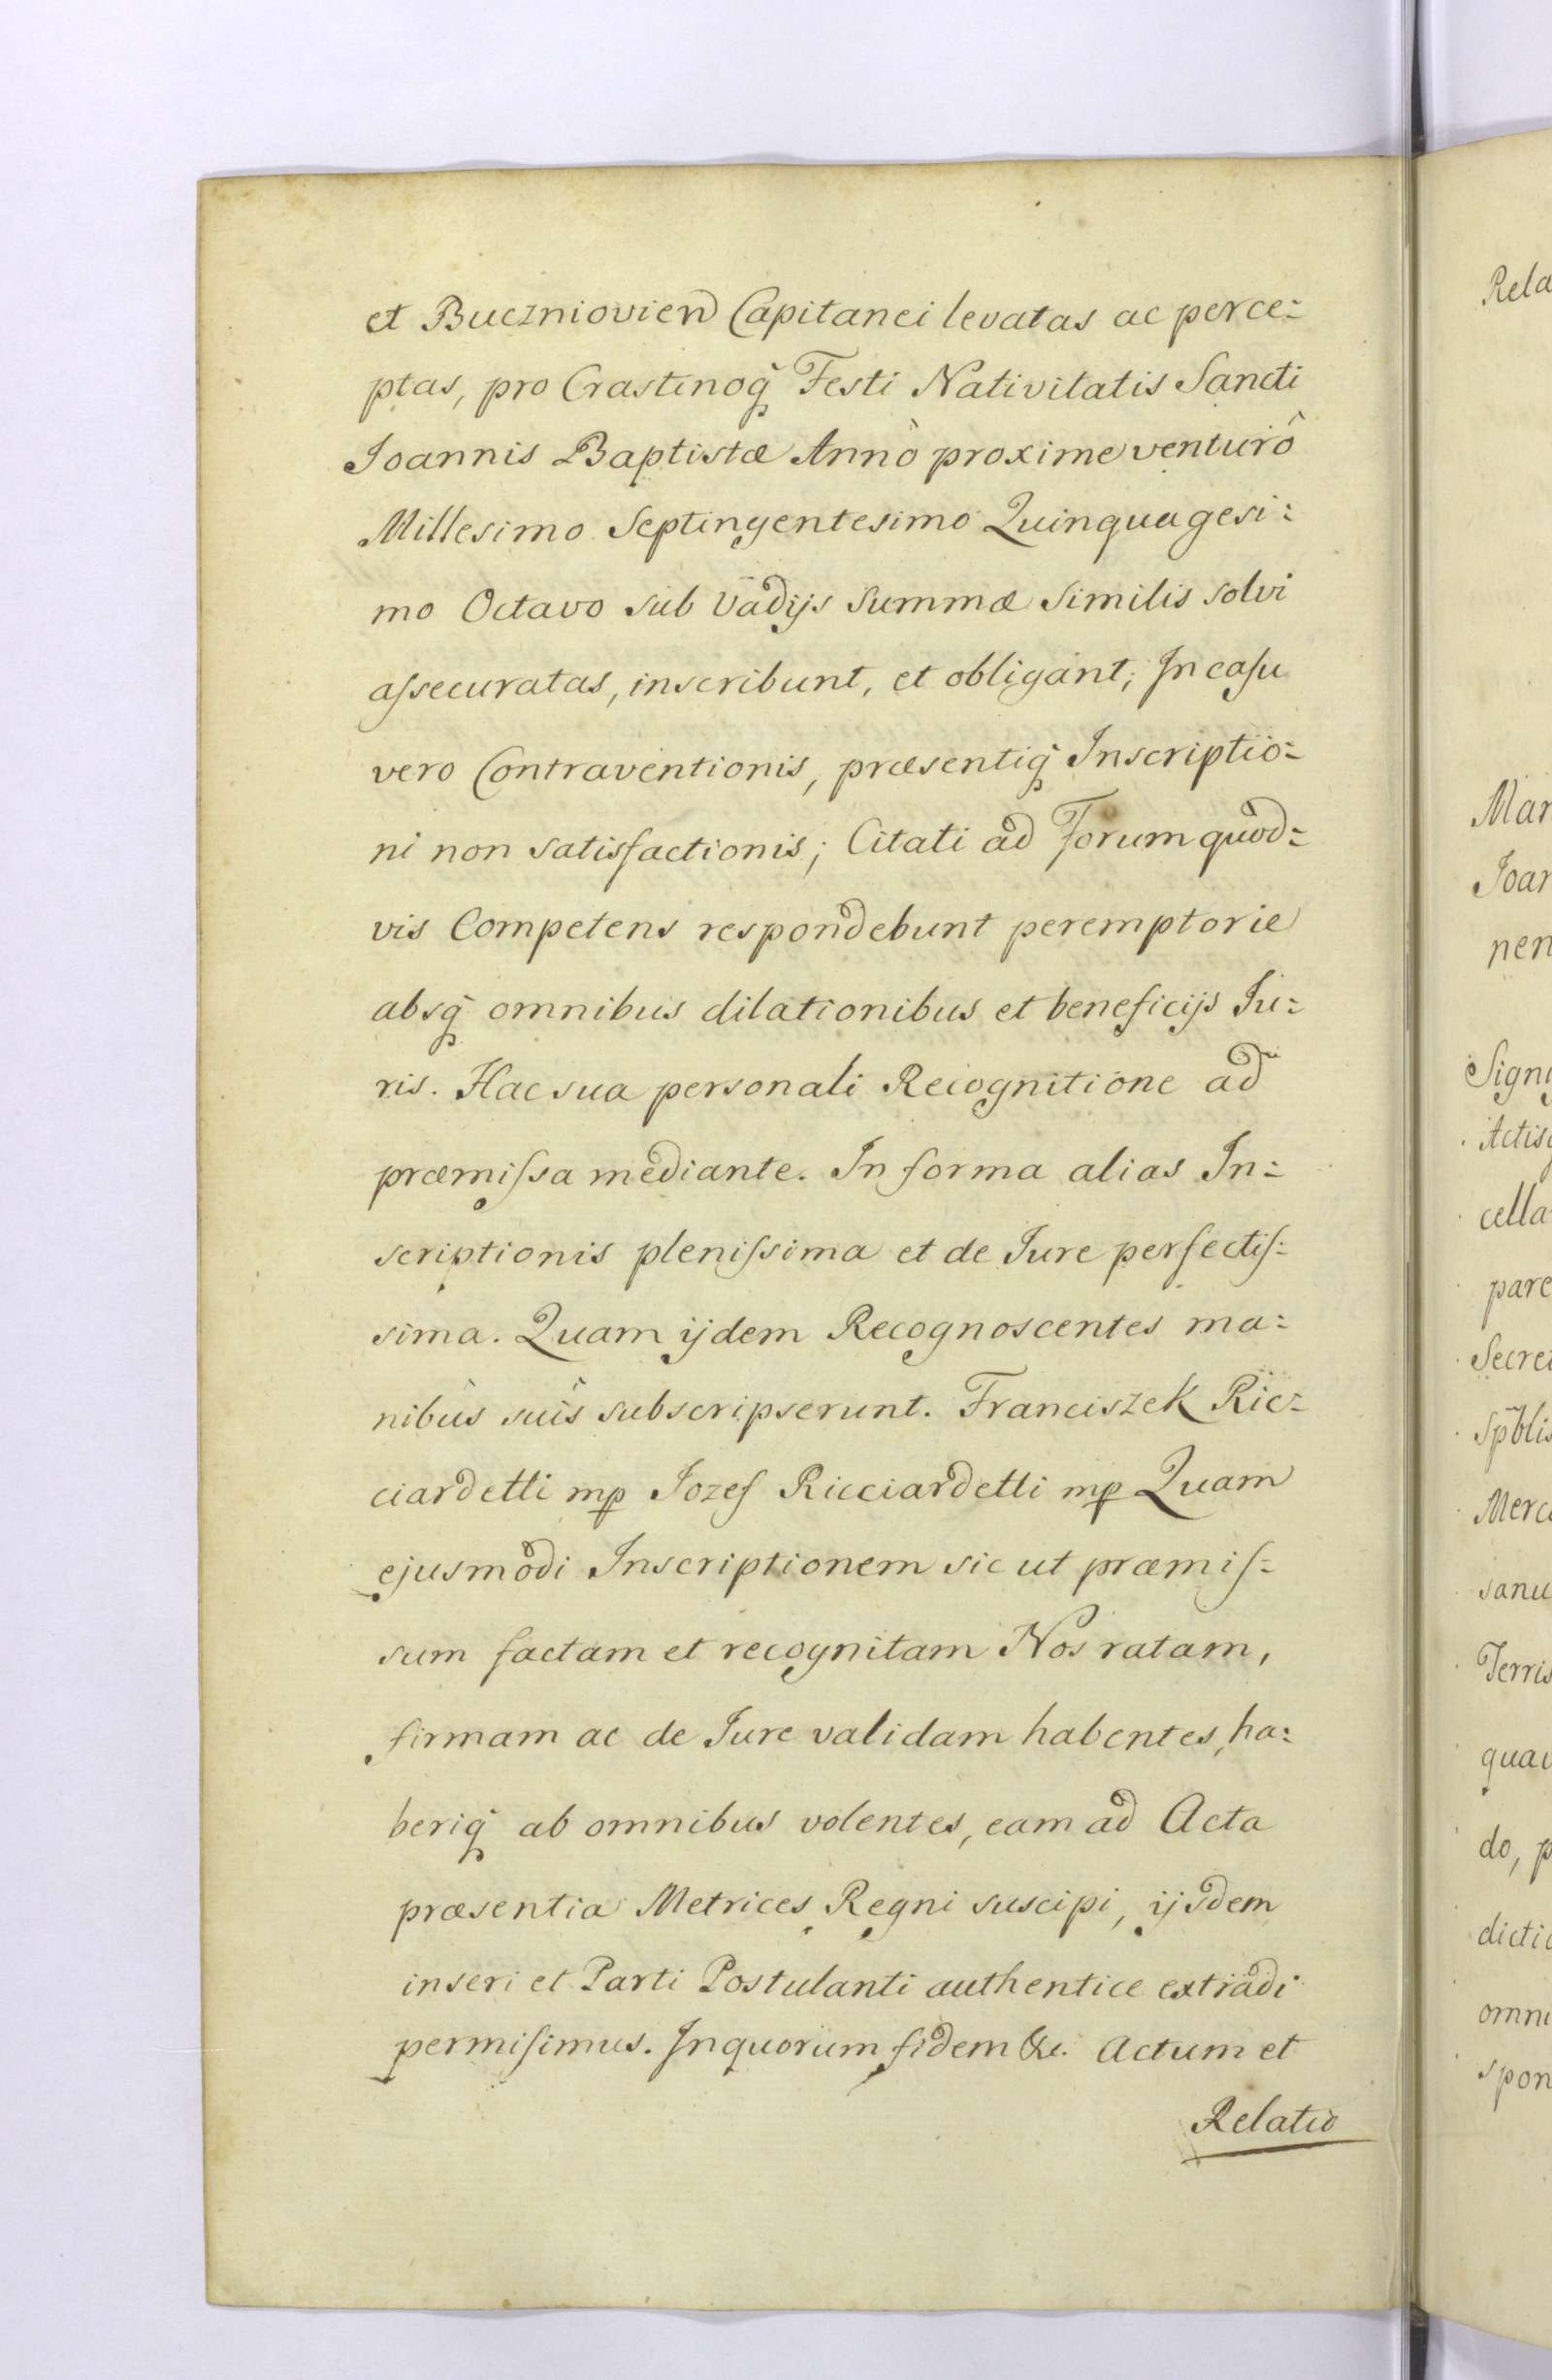 et Buczniovien Capitanei levatas ac perce=
ptas, pro Crastinoq̃ Festi Nativitatis Sancti
Joannis Baptistæ Annô proxime venturô
Millesimo Septingentesimo Quinquagesi=
mo Octavo sub Vadijs Summæ Similis solvi
aſsecuratas, inscribunt, et obligant; In caſu
vero Contraventionis, præsentiq̃ Inscriptio=
ni non satisfactionis; Citati ad Forum quod=
vis Competens respondebunt peremptorie
absq̃ omnibus dilationibus et beneficijs Ju=
ris. Hac sua personali Recognitione ad
præmiſsa mediante. In forma alias In=
scriptionis pleniſsima et de Jure perfectiſ=
sima. Quam ijdem Recognoscentes ma=
nibus suis subscripserunt. Franciszek Ric=
ciardetti mp Jozef Ricciardetti mp Quam
ejusmodi Inscriptionem sic ut præmiſ=
sum factam et recognitam Nos ratam,
firmam ac de Jure validam habentes, ha=
beriq̃ ab omnibus volentes, eam ad Acta
præsentia Metrices Regni suscipi, ijsdem
inseri et Parti Postulanti authentice extradi
permiſimus. In quorum fidem &c. Actum et
Relatio
Rela
Mar
Joan
nen
Sign
Actis
cella
pare
Secre
Spblis
Merc
sanu
Terris
qua
do, p
dicti
omni
spon